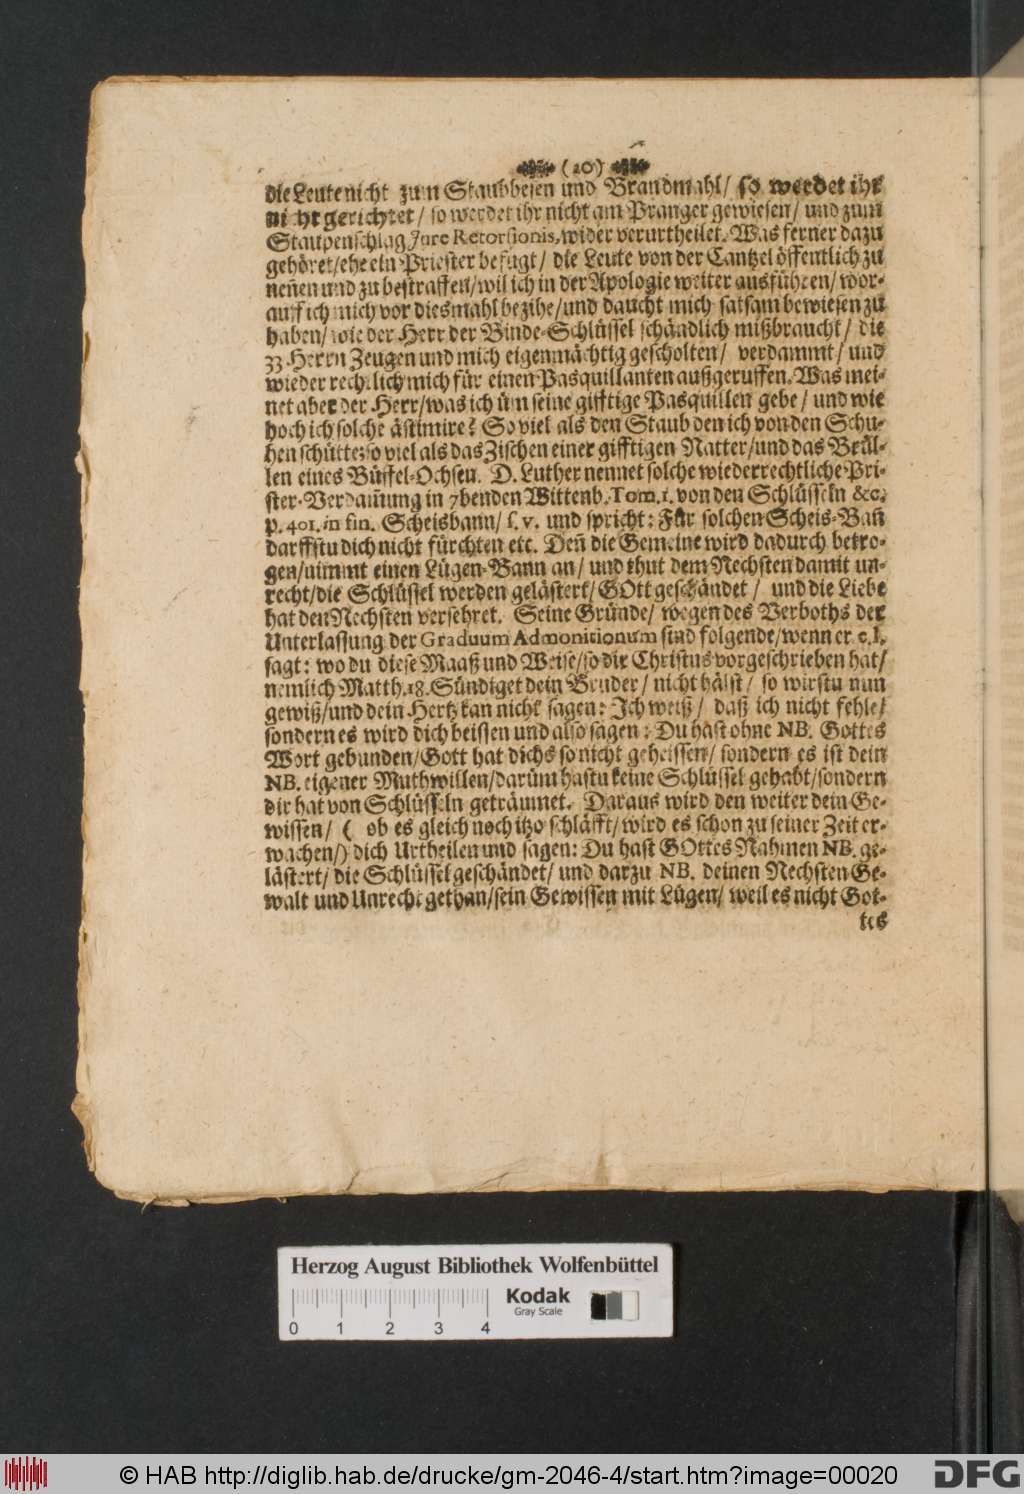 (20)
die Leute nicht zum Staubbesen und Brandmahl/ so werdet ihr
nicht gerichtet/ so werdet ihr nicht am Pranger gewiesen/ und zum
Staupenschlag Jure Retorsionis, wider verurtheilet. Was ferner dazu
gehöret/ehe ein Priester befugt/ die Leute von der Cantzel öffentlich zu
neñen und zu bestraffen/wil ich in der Apologie weiter ausführen/ wor-
auff ich mich vor diesmahl bezihe/und daucht mich satsam bewiesen zu
haben/ wie der Herr der Binde-Schlüssel schändlich mißbraucht/ die
33. Herrn Zeugen und mich eigenmächtig gescholten/ verdammt/ und
wieder rechtlich mich für einen Pasquillanten außgeruffen. Was mei-
net aber der Herr/was ich üm seine gifftige Pasquillen gebe/ und wie
hoch ich solche ästimire? So viel als den Staub den ich von den Schu-
hen schütte; so viel als das Zischen einer gifftigen Natter/und das Brül-
len eines Büffel-Ochsen. D. Luther nennet solche wiederrechtliche Pri-
ster-Verdam̃ung in 7benden Wittenb. Tom. 1. von den Schlüsseln &c.
p. 401. in fin. Scheisbann/ s. v. und spricht: Für solchen Scheis-Bañ
darffstu dich nicht fürchten etc. Deñ die Gemeine wird dadurch betro-
gen/nimmt einen Lügen-Bann an/ und thut dem Nechsten damit un-
recht/die Schlüssel werden gelästert/ GOtt geschändet/ und die Liebe
hat den Nechsten versehret. Seine Gründe/ wegen des Verboths der
Unterlassung der Graduum Admonitionum sind folgende/wenn er c. l.
sagt: wo du diese Maaß und Weise/so dir Christus vorgeschrieben hat/
nemlich Matth. 18. Sündiget dein Bruder/ nicht hälst/ so wirstu nun
gewiß/und dein Hertz kan nicht sagen: Ich weiß/ daß ich nicht fehle/
sondern es wird dich beissen und also sagen: Du hast ohne NB. Gottes
Wort gebunden/Gott hat dichs so nicht geheissen/ sondern es ist dein
NB. eigener Muthwillen/darüm hastu keine Schlüssel gehabt/sondern
dir hat von Schlüsseln geträumet. Daraus wird den weiter dein Ge-
wissen/ ( ob es gleich noch itzo schläfft/ wird es schon zu seiner Zeit er-
wachen/) dich Urtheilen und sagen: Du hast GOttes Nahmen NB. ge-
lästert/ die Schlüssel geschändet/ und darzu NB. deinen Nechsten Ge-
walt und Unrecht gethan/sein Gewissen mit Lügen/ weil es nicht Got-
tes
Herzog August Bibliothek Wolfenbüttel
Kodak
Gray Scale
0 1 2 3 4
© HAB http://diglib.hab.de/drucke/gm-2046-4/start.htm?image=00020
DFG